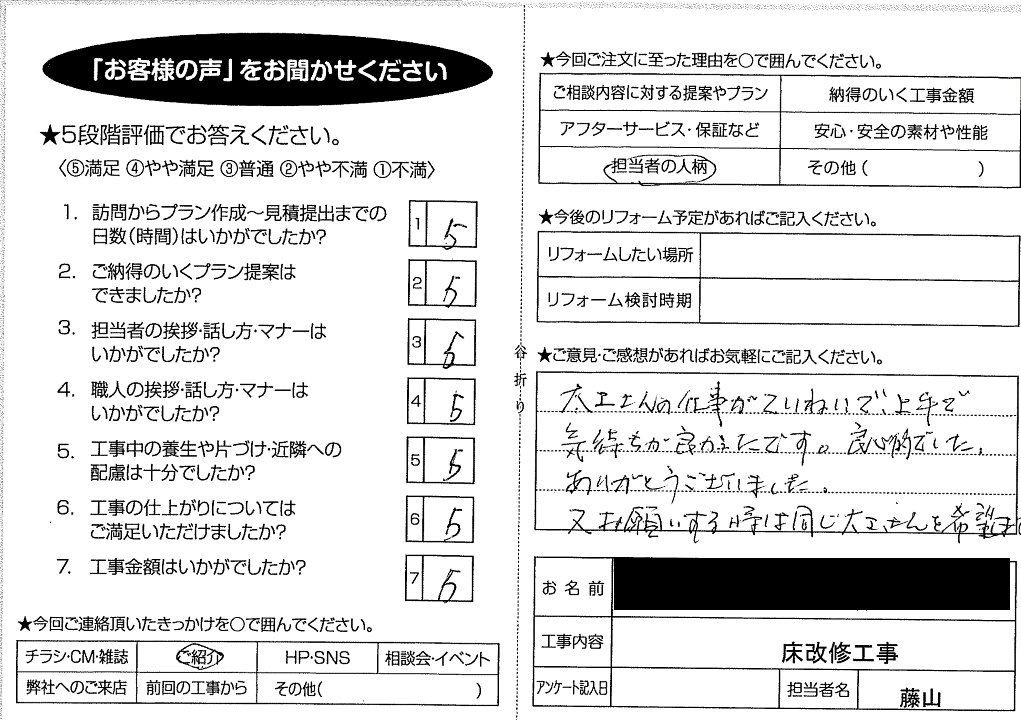 「お客様の声」をお聞かせください
★5段階評価でお答えください。
〈⑤満足 ④やや満足 ③普通 ②やや不満 ①不満〉
1. 訪問からプラン作成～見積提出までの
日数(時間)はいかがでしたか?
1 5
2. ご納得のいくプラン提案は
できましたか?
2 5
3. 担当者の挨拶・話し方・マナーは
いかがでしたか?
3 5
4. 職人の挨拶・話し方・マナーは
いかがでしたか?
4 5
5. 工事中の養生や片づけ・近隣への
配慮は十分でしたか?
5 5
6. 工事の仕上がりについては
ご満足いただけましたか?
6 5
7. 工事金額はいかがでしたか?
7 5
★今回ご連絡頂いたきっかけを○で囲んでください。
チラシ・CM・雑誌 ご紹介 HP・SNS 相談会・イベント
弊社へのご来店 前回の工事から その他( )
谷折り
★今回ご注文に至った理由を○で囲んでください。
ご相談内容に対する提案やプラン 納得のいく工事金額
アフターサービス・保証など 安心・安全の素材や性能
担当者の人柄 その他( )
★今後のリフォーム予定があればご記入ください。
リフォームしたい場所
リフォーム検討時期
★ご意見・ご感想があればお気軽にご記入ください。
大工さんの仕事がていねいで、上手で
気持ちが良かったです。良心的でした。
ありがとうございました。
又お願いする時は同じ大工さんを希望
お名前
工事内容 床改修工事
アンケート記入日 担当者名 藤山